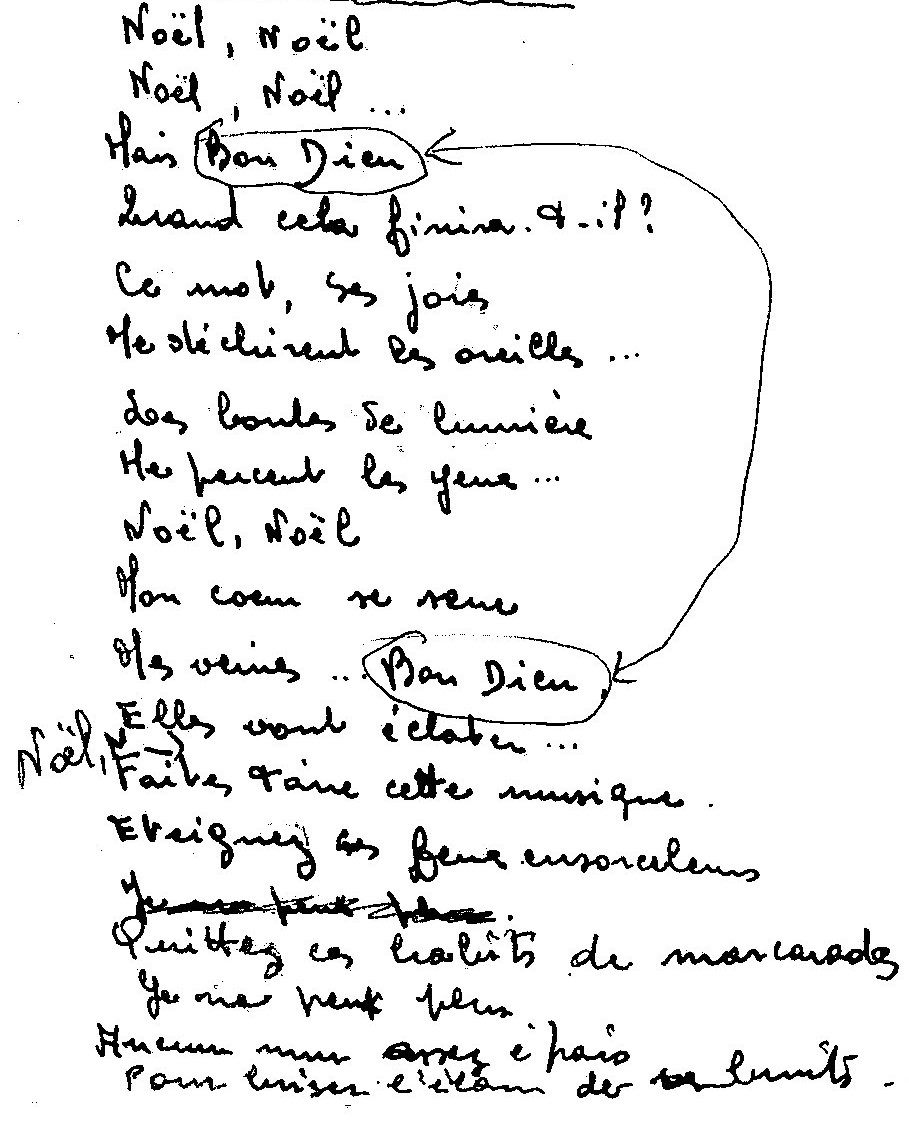 Noël, Noël
Noël, Noël ...
Mais Bon Dieu
Quand cela finira-t-il ?
Ce mot, ses joies
Me déchirent les oreilles ...
Les boules de lumière
Me percent les yeux ...
Noël, Noël
Mon coeur se serre
Mes veines ... Bon Dieu,
Elles vont éclater ...
Noël, N —
Faites taire cette musique.
Eteignez ces feux ensorceleurs
Je ne peux plus.
Quittez ces habits de mascarades
Je ne peux plus
Aucun mur assez épais
Pour briser l'élan de bruits.